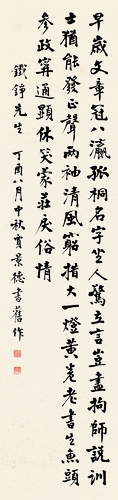 早歲文章冠八瀛孤桐名字世人驚立言豈盡拘師說訓
士猶能發正聲兩袖清風窮措大一燈黃卷老書生魚頭
參政寗通顯休笑蒙莊戾俗情
鐵錚先生 丁酉八月中秋賈景德書舊作